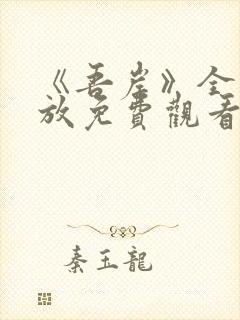 《吾岸》全
放免費觀看
秦玉龍